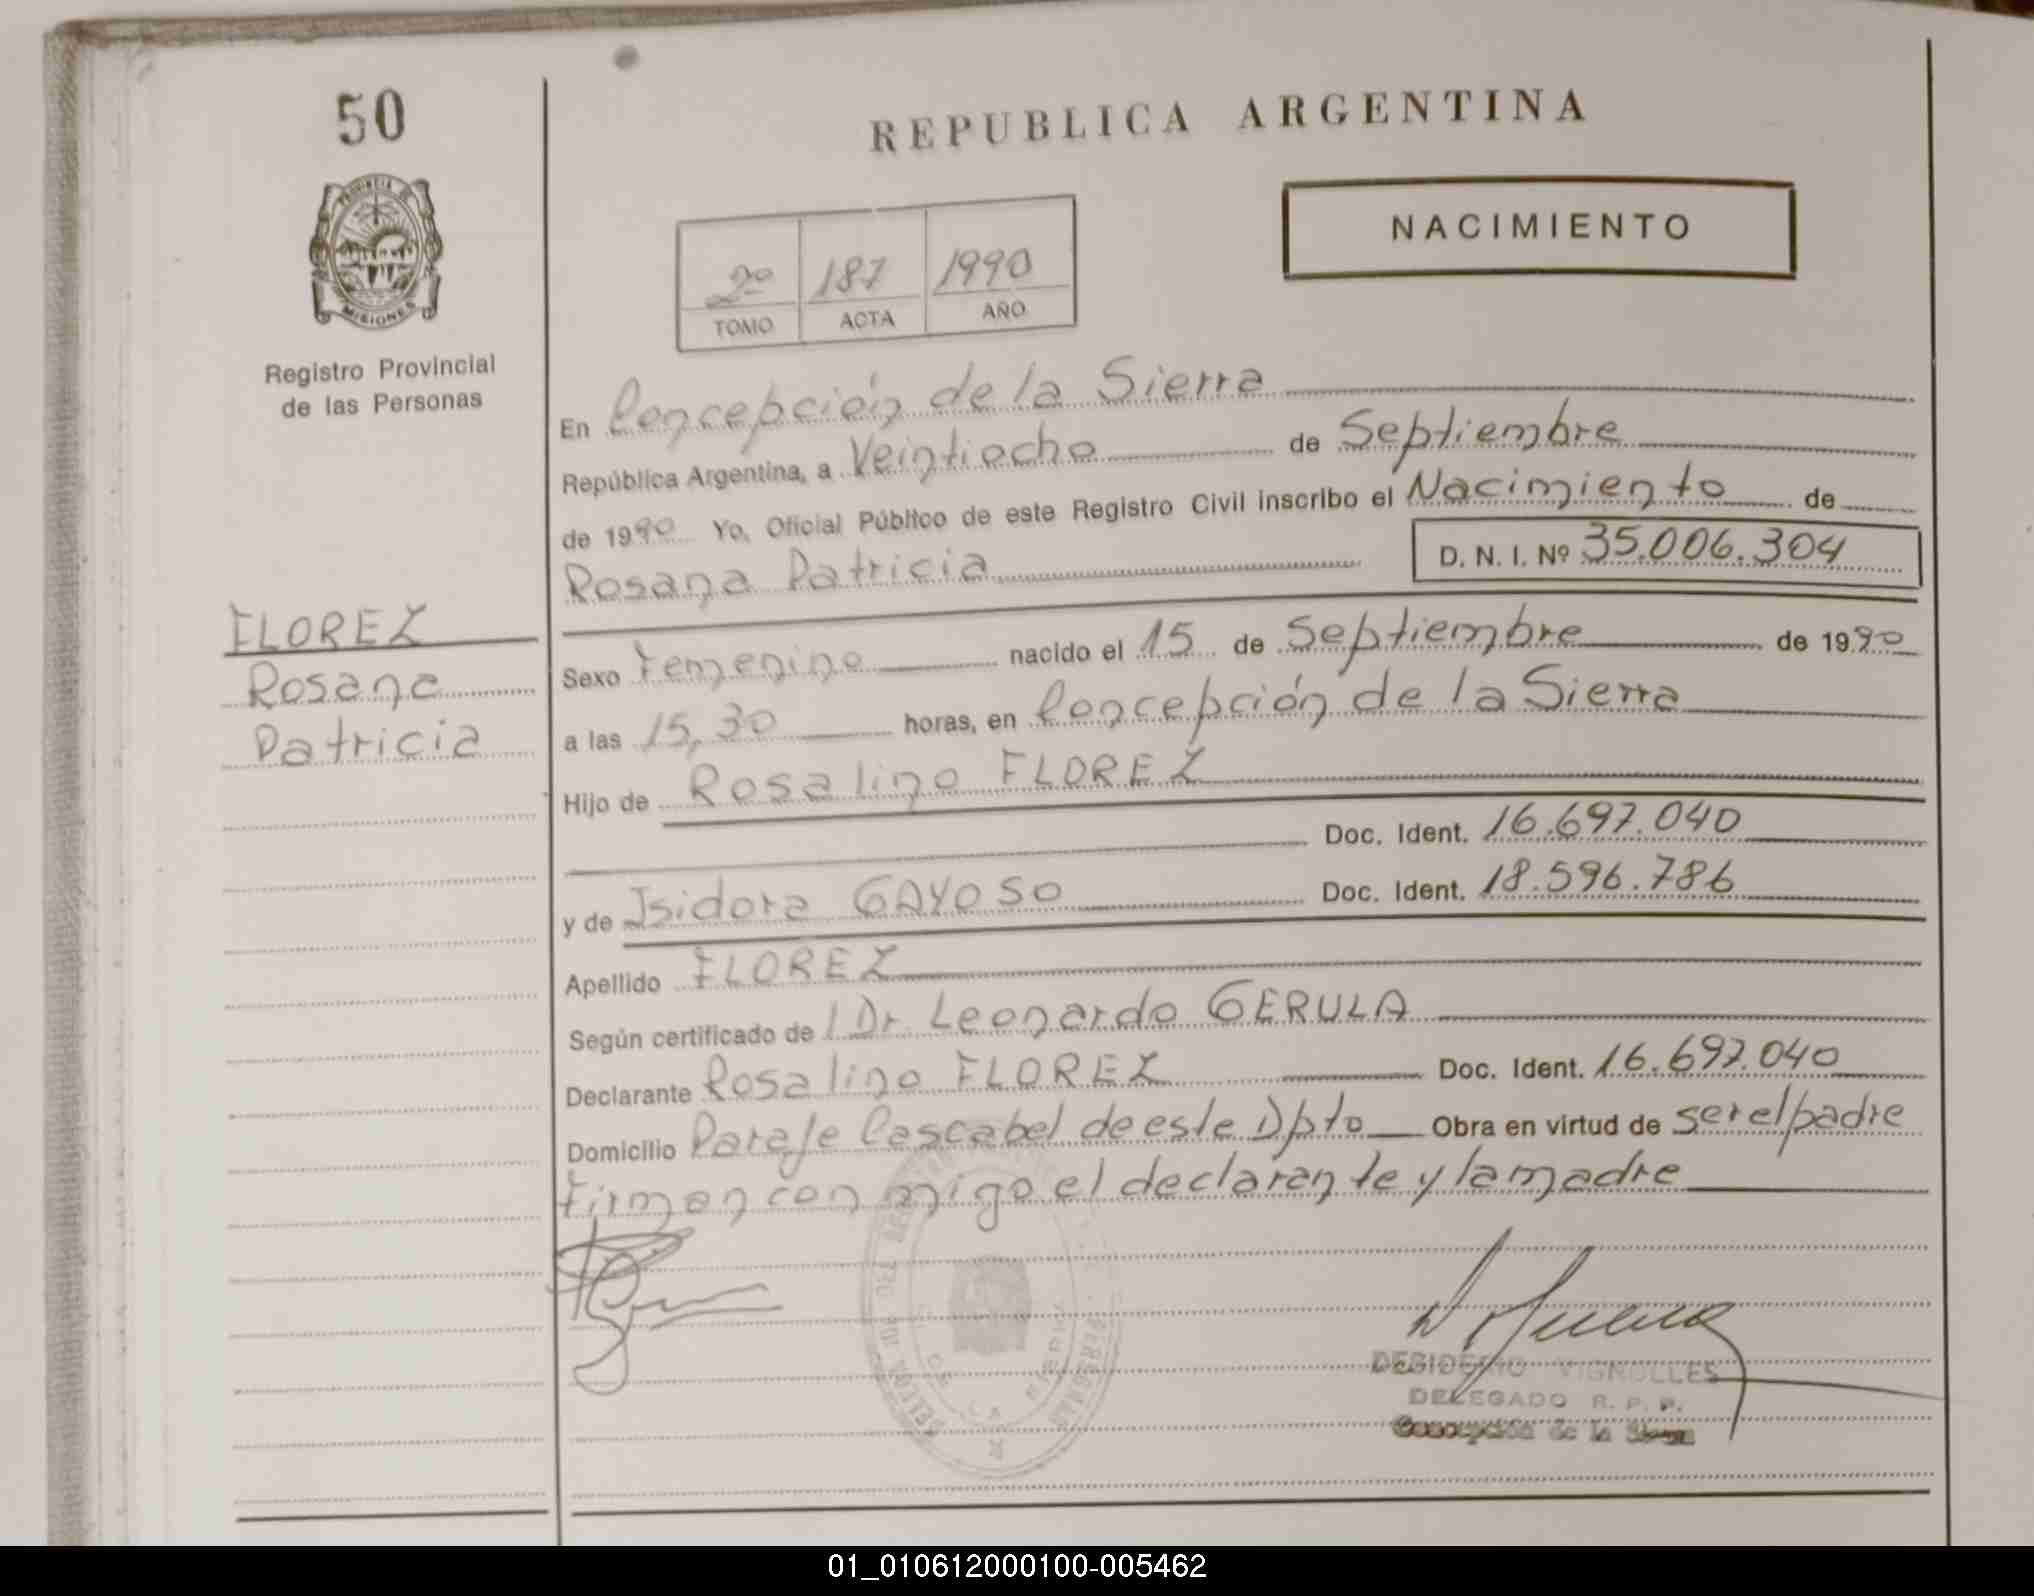 50
REPUBLICA ARGENTINA
PROVINCIA
MISIONES
Registro Provincial
de las Personas
NACIMIENTO
2º 187 1990
TOMO ACTA AÑO
En Concepción de la Sierra
República Argentina, a Veintiocho de Septiembre
de 1990 Yo, Oficial Público de este Registro Civil inscribo el Nacimiento de
Rosana Patricia D. N. I. Nº 35.006.304
FLOREZ
Rosana
Patricia
Sexo Femenino nacido el 15 de Septiembre de 1990
a las 15,30 horas, en Concepción de la Sierra
Hijo de Rosalino FLOREZ
Doc. Ident. 16.697.040
y de Isidora GAYOSO Doc. Ident. 18.596.786
Apellido FLOREZ
Según certificado de l Dr. Leonardo GERULA
Declarante Rosalino FLOREZ Doc. Ident. 16.697.040
Domicilio Paraje Cascabel de este Dpto Obra en virtud de ser el padre
Firman con migo el declarante y la madre
DESIDERIO VIGNOLLES
DELEGADO R. P. P.
Concepción de la Sierra
01_010612000100-005462